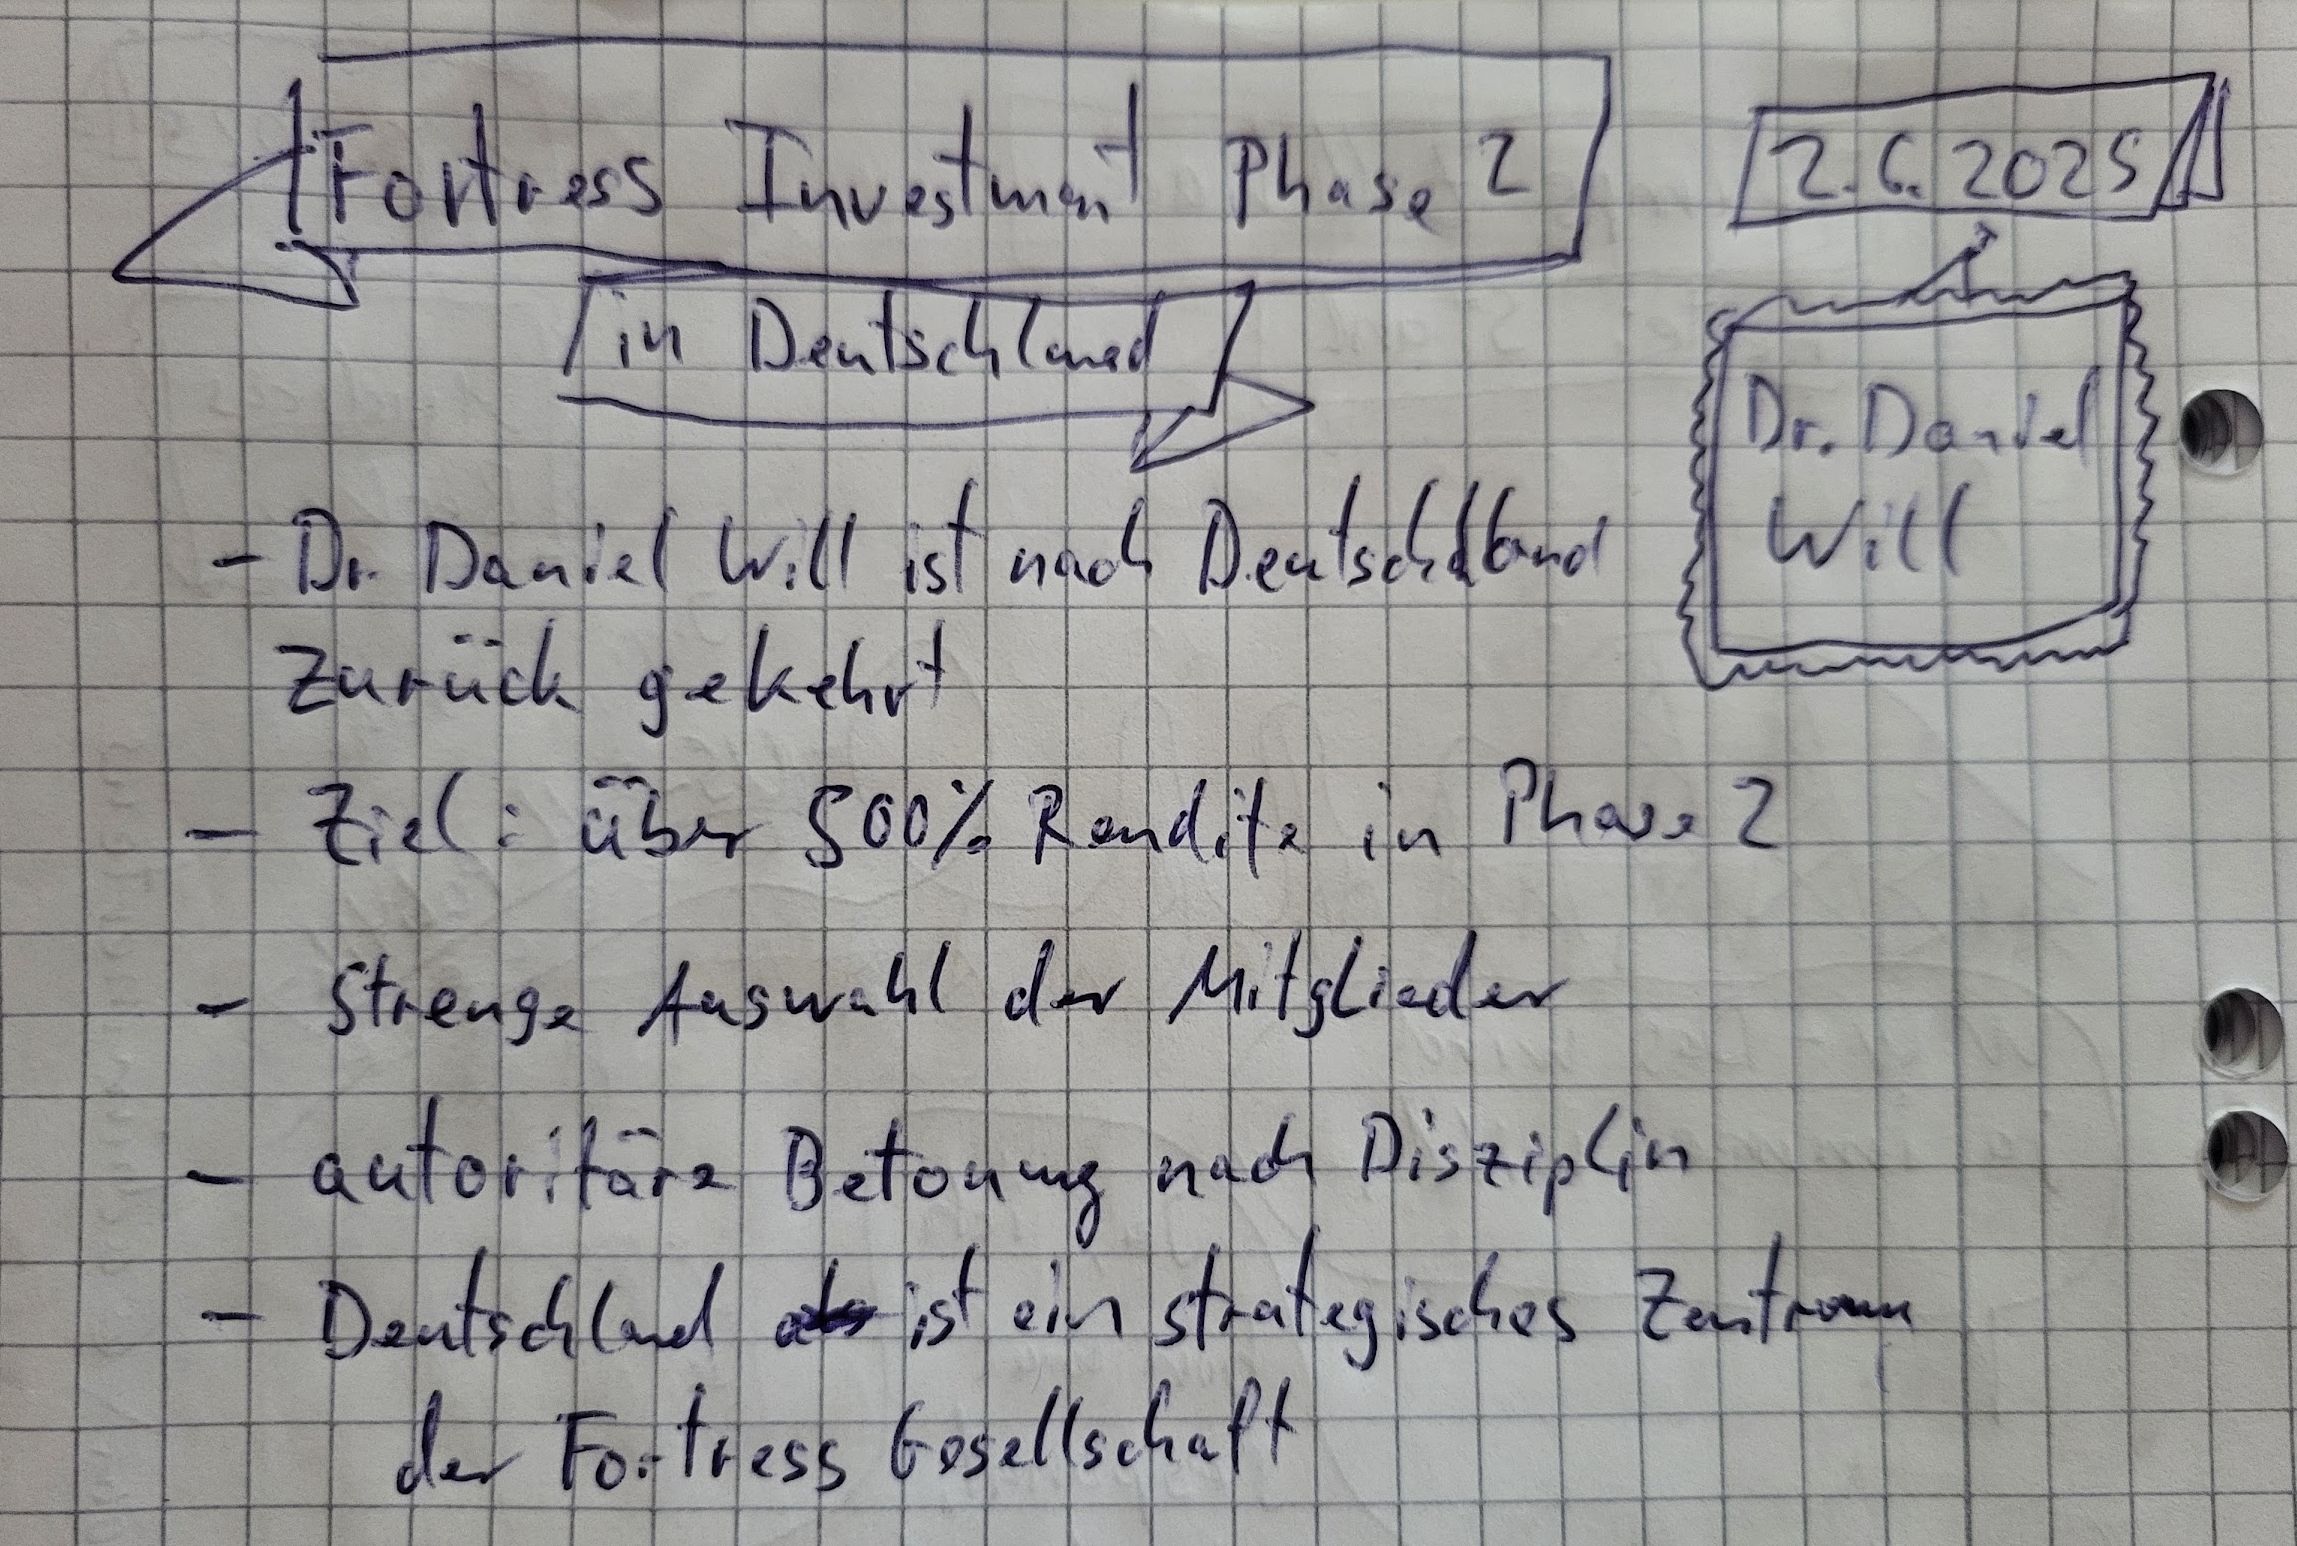 Fortress Investment Phase 2
2.6.2025
in Deutschland
Dr. Daniel
Will
- Dr. Daniel Will ist nach Deutschland
zurück gekehrt
- Ziel: über 500% Rendite in Phase 2
- Strenge Auswahl der Mitglieder
- autoritäre Betonung nach Disziplin
- Deutschland ist ein strategisches Zentrum
der Fortress Gesellschaft